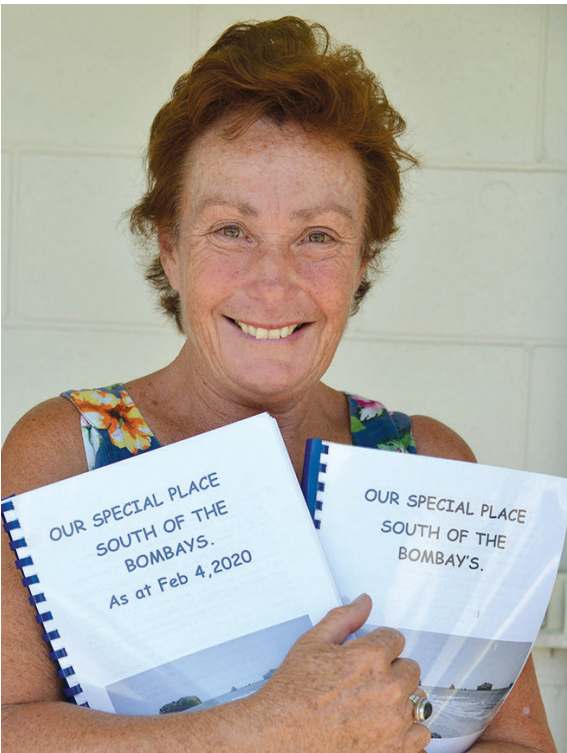 OUR SPECIAL PLACE
SOUTH OF THE
BOMBAYS.
As at Feb 4,2020
OUR SPECIAL PLACE
SOUTH OF THE
BOMBAY'S.